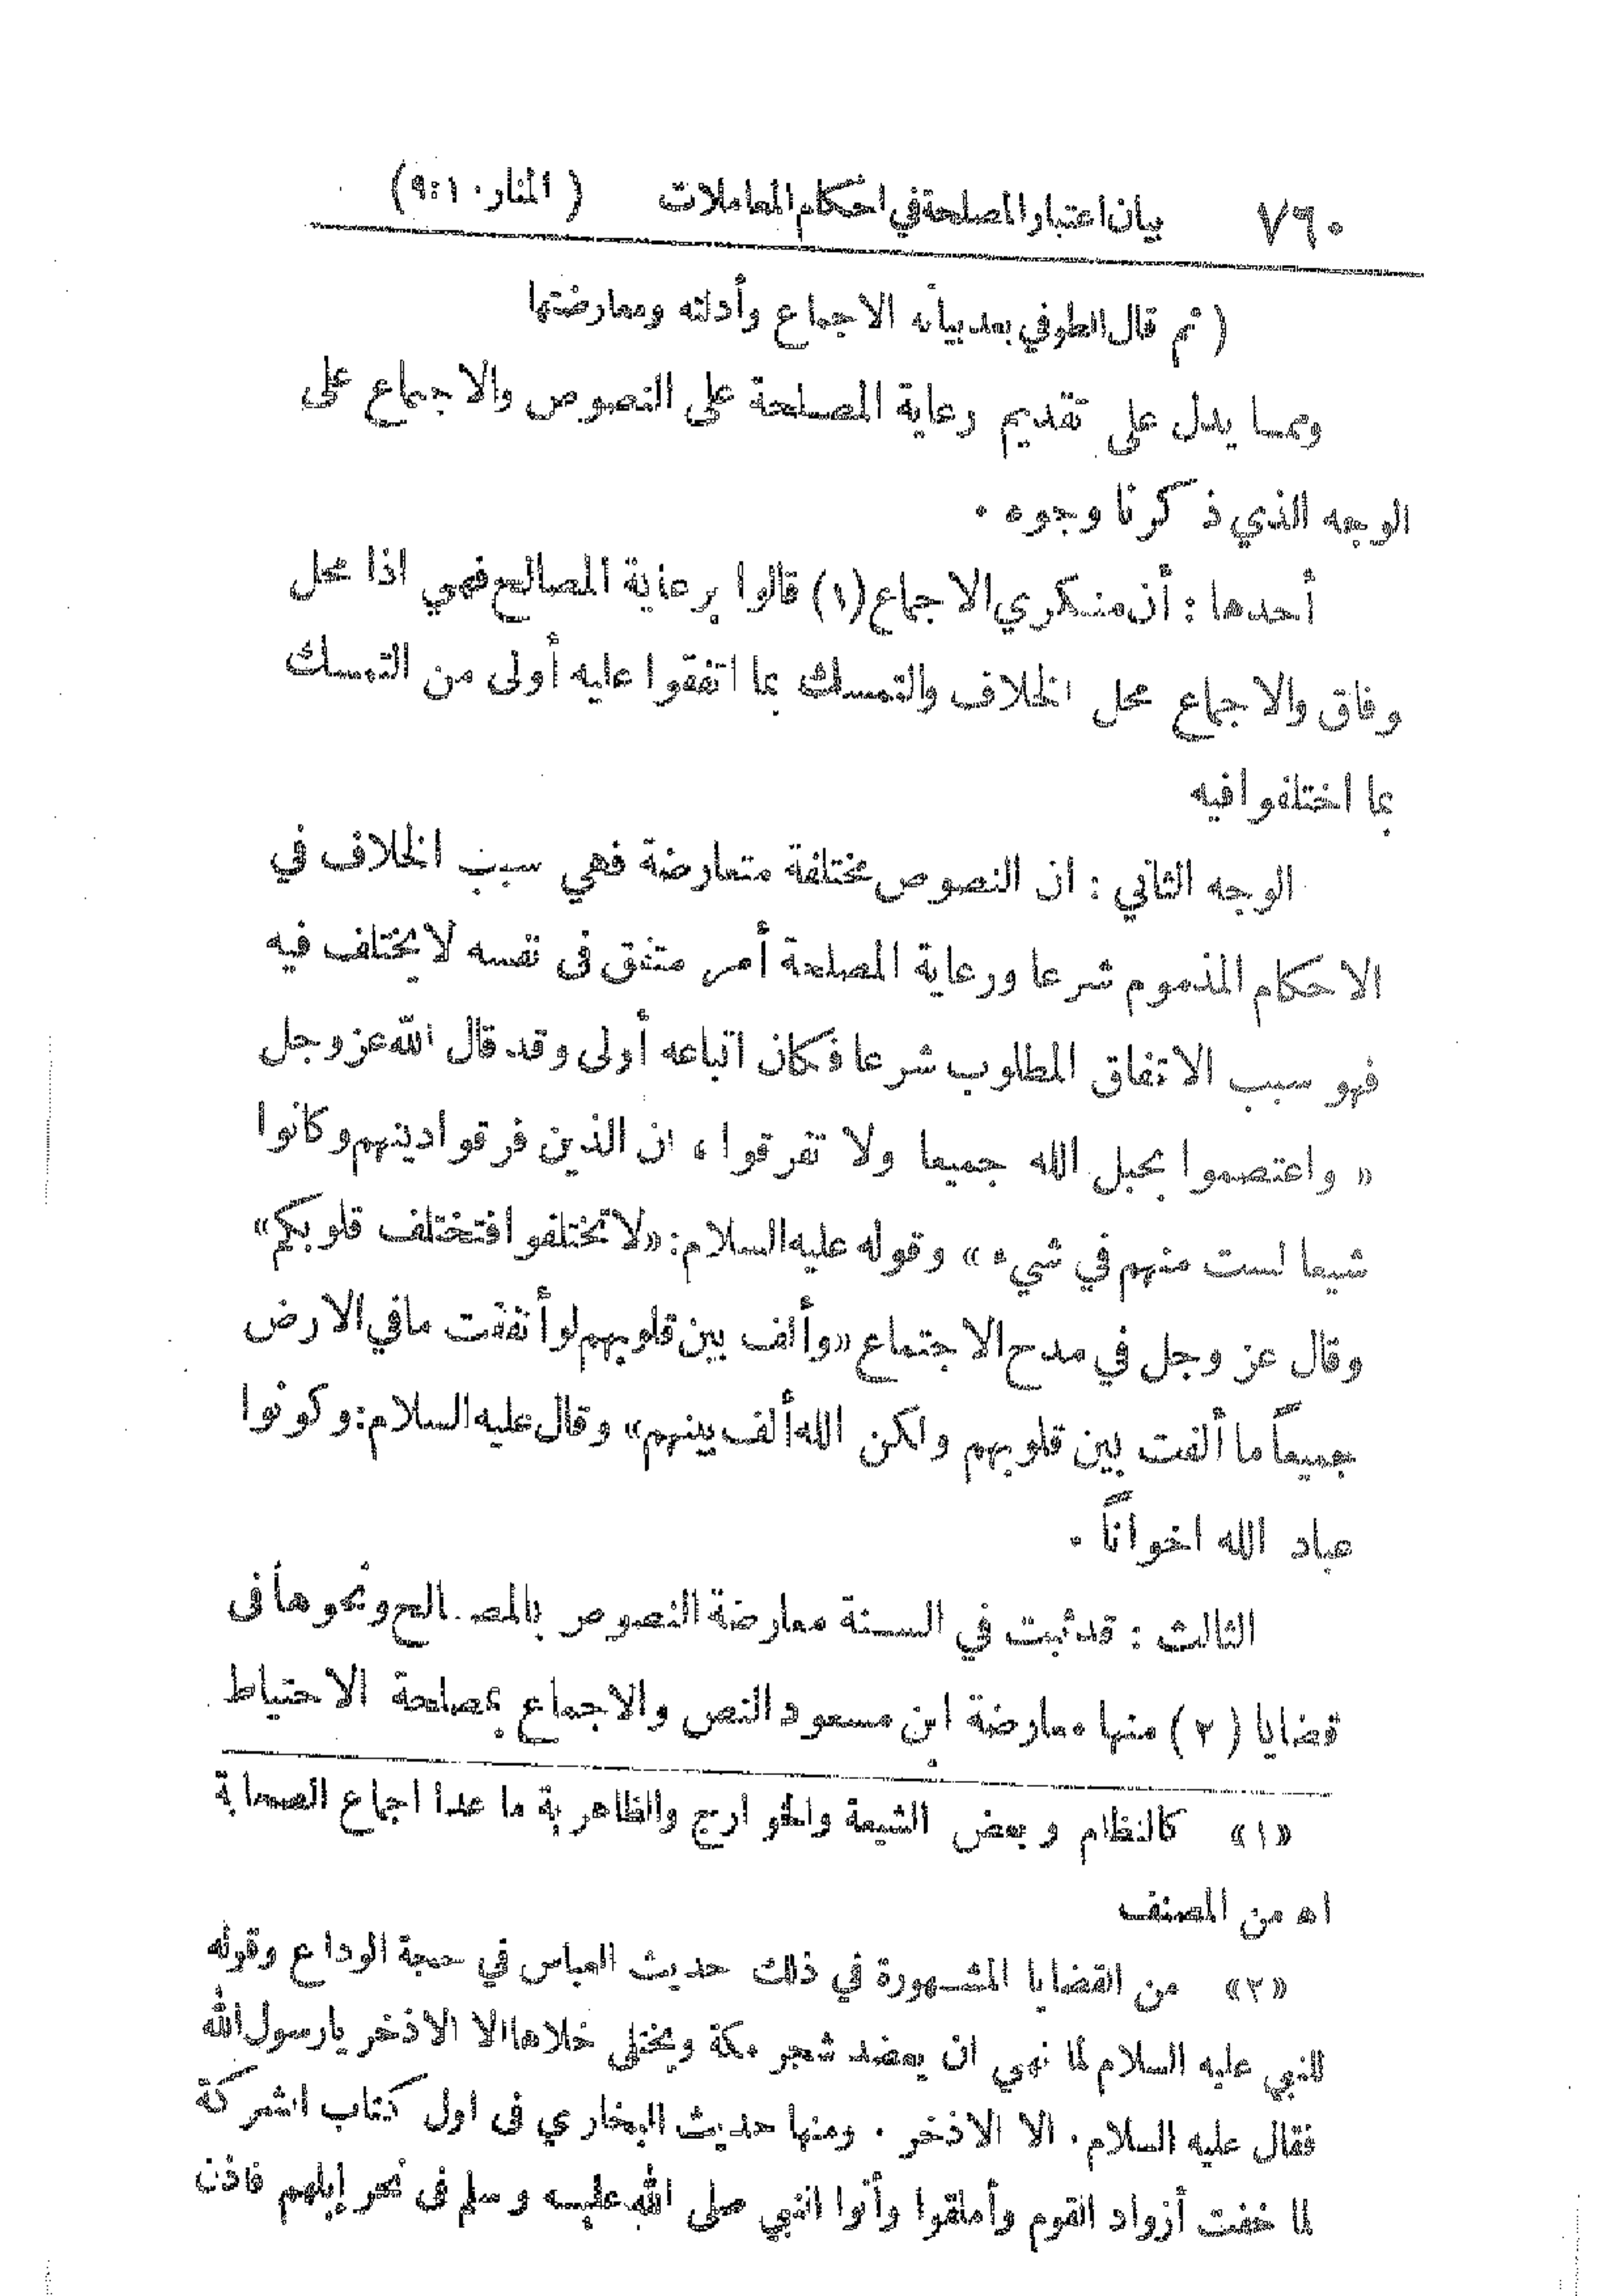 ٧٦٠ بيان اعتبار المصلحة في احكام المعاملات ( المنار ١٠ : ٩ )
( ثم قال الطوفي بعد بيانه الاجماع وأدلته ومعارضتها
ومما يدل على تقديم رعاية المصلحة على النصوص والاجماع على
الوجه الذي ذكرنا وجوه .
أحدها : أن منكري الاجماع (١) قالوا برعاية المصالح فهي اذا محل
وفاق والاجماع محل الخلاف والتمسك بما اتفقوا عليه أولى من التمسك
بما اختلفوا فيه
الوجه الثاني : ان النصوص مختلفة متعارضة فهي سبب الخلاف في
الاحكام المذموم شرعا ورعاية المصلحة أمر متفق في نفسه لا يختلف فيه
فهو سبب الاتفاق المطلوب شرعا فكان اتباعه أولى وقد قال الله عز وجل
« واعتصموا بحبل الله جميعا ولا تفرقوا ، ان الذين فرقوا دينهم وكانوا
شيعا لست منهم في شيء » وقوله عليه السلام : « لا تختلفوا فتختلف قلوبكم »
وقال عز وجل في مدح الاجتماع « وألف بين قلوبهم لو أنفقت ما في الارض
جميعاً ما ألفت بين قلوبهم ولكن الله ألف بينهم » وقال عليه السلام : وكونوا
عباد الله اخواناً .
الثالث : قد ثبت في السنة معارضة النصوص بالمصالح ونحوها في
قضايا (٢) منها معارضة ابن مسعود النص والاجماع بمصلحة الاحتياط
«١» كالنظام وبعض الشيعة والخوارج والظاهرية ما عدا اجماع الصحابة
اه من المصنف
«٢» من القضايا المشهورة في ذلك حديث العباس في حجة الوداع وقوله
للنبي عليه السلام لما نهى ان يعضد شجر مكة ويختلى خلاها الا الاذخر يا رسول الله
فقال عليه السلام . الا الاذخر . ومنها حديث البخاري في اول كتاب الشركة
لما خفت أزواد القوم وأملقوا وأتوا النبي صلى الله عليه وسلم في نحر إبلهم فاذن